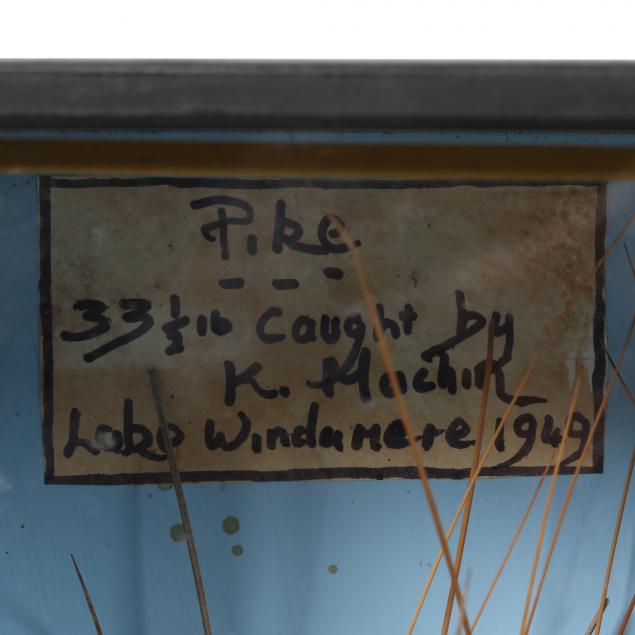 Pike
33 1/2 lb Caught by
K. Machin
Lake Windamere 1949